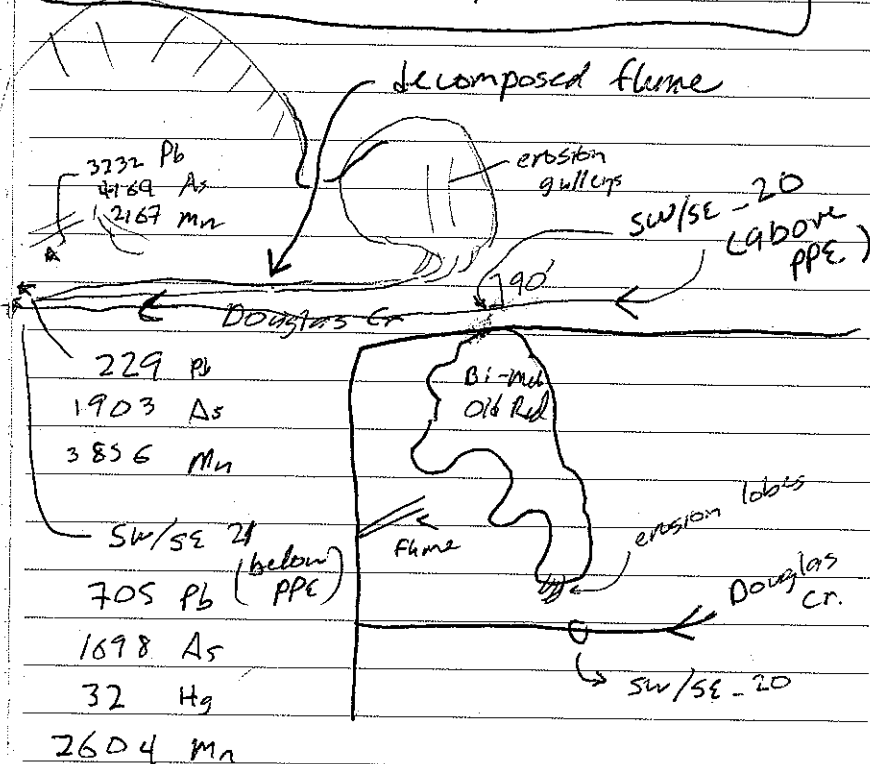 decomposed flume
3232 Pb
4169 As
12167 Mn
erosion
gulleys
SW/SE-20
(above
PPE)
90'
Douglas Cr
229 Pb
1903 As
3856 Mn
Bi-Met
Old Red
SW/SE 21
(below
PPE)
flume
erosion lobes
Douglas
Cr.
705 Pb
1698 As
SW/SE-20
32 Hg
2604 Mn